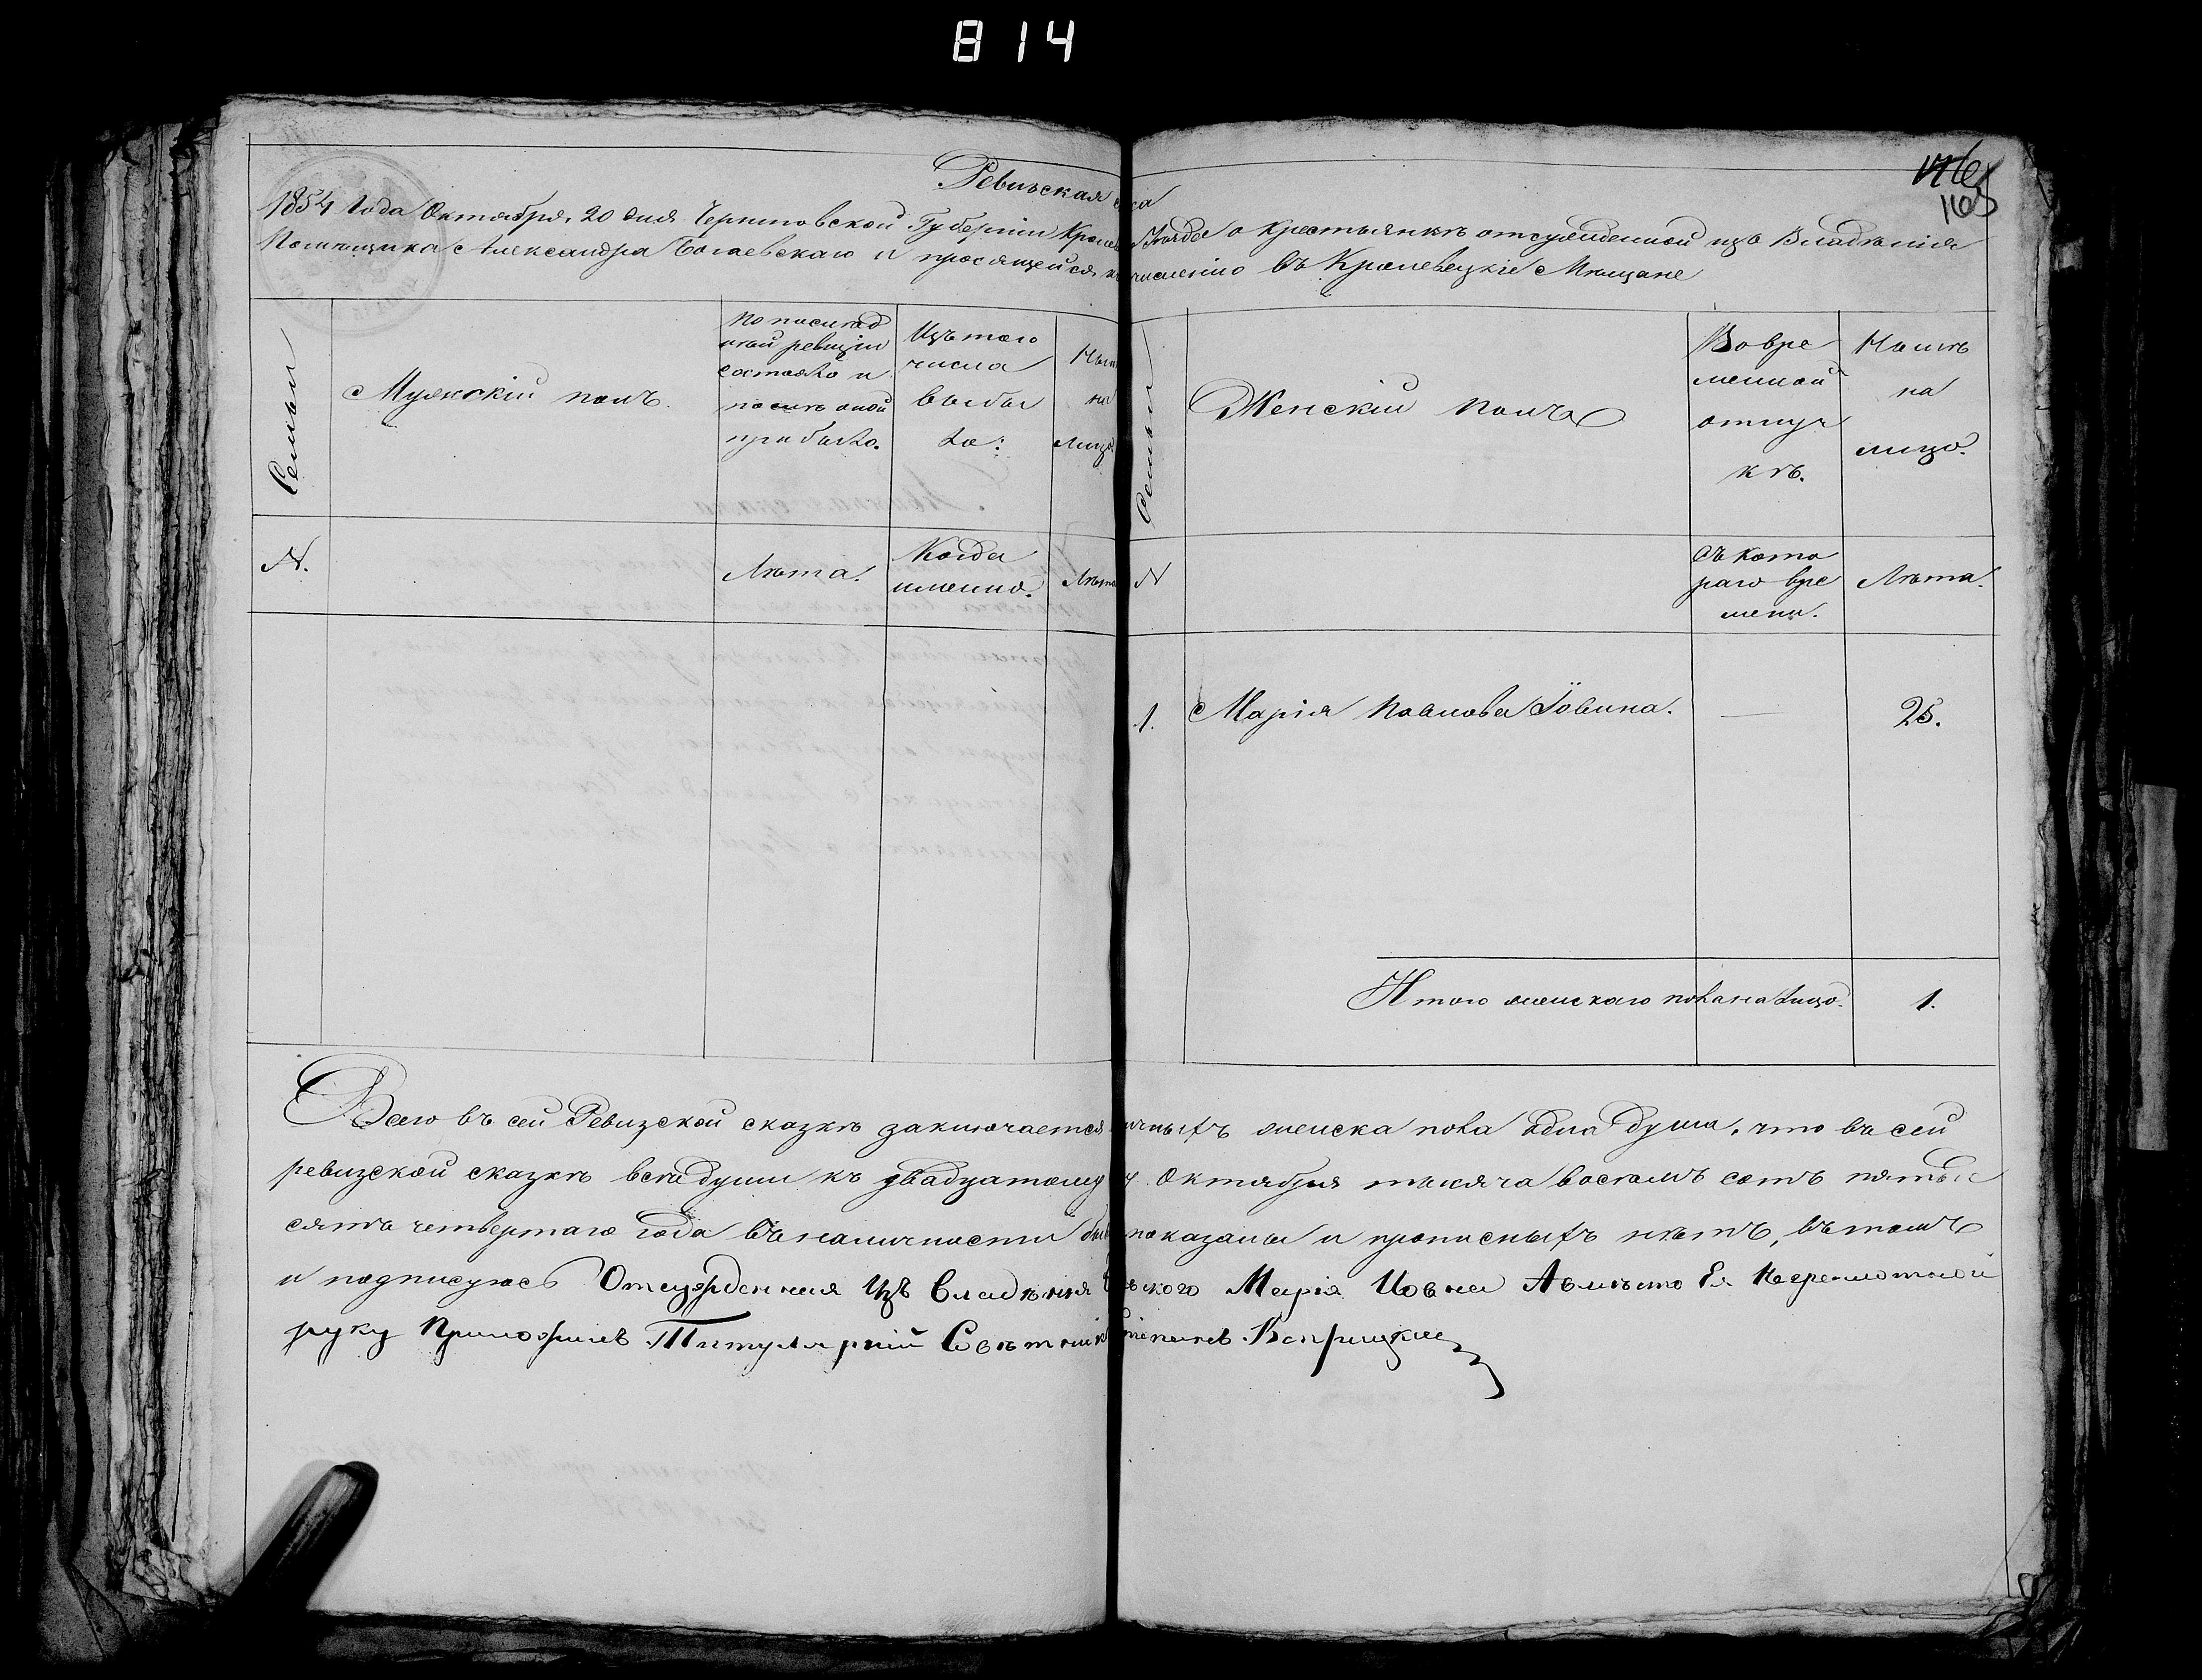 814
Ревизская с ка
1165
1854 Года Октября 20 дня Черниговской Губерніи Кролев Уѣзда о Крестьянкѣ отсужденной изъ Владѣнія
Помѣщика Александра Богаевскаго и просящейся къ численію въ Кролевецкіе Мѣщане
Семьи
Мужскій полъ.
По послѣд
ней ревизіи
состояло и
послѣ оной
прибыло.
Изъ того
числа
выбы
ло:
Нын
на
лицо
Семьи
Женскій полъ
Во вре
менной
отлуч
кѣ.
Нынѣ
на
лицо.
N.
Лѣта.
Когда
именно.
Лѣта
N
Съ кото
раго вре
мени.
Лѣта.
1. Марія Павлова Іовина. — 25.
Итого женскаго пола на лицо. 1.
Всего въ сей Ревизской сказкѣ заключается ичныхъ женска пола одна душа, что въ сей
ревизской сказкѣ всѣ души къ двадцатому Октября тысяча восемъ сотъ пятьде
сятъ четвертаго года въ наличности бы показаны и прописныхъ нѣтъ, въ томъ
и подписуюсь Отсужденная Изъ Владѣнія ского Марія Иовна А вмѣсто Ея Неграмотной
руку Приложилъ Титулярній Совѣтник